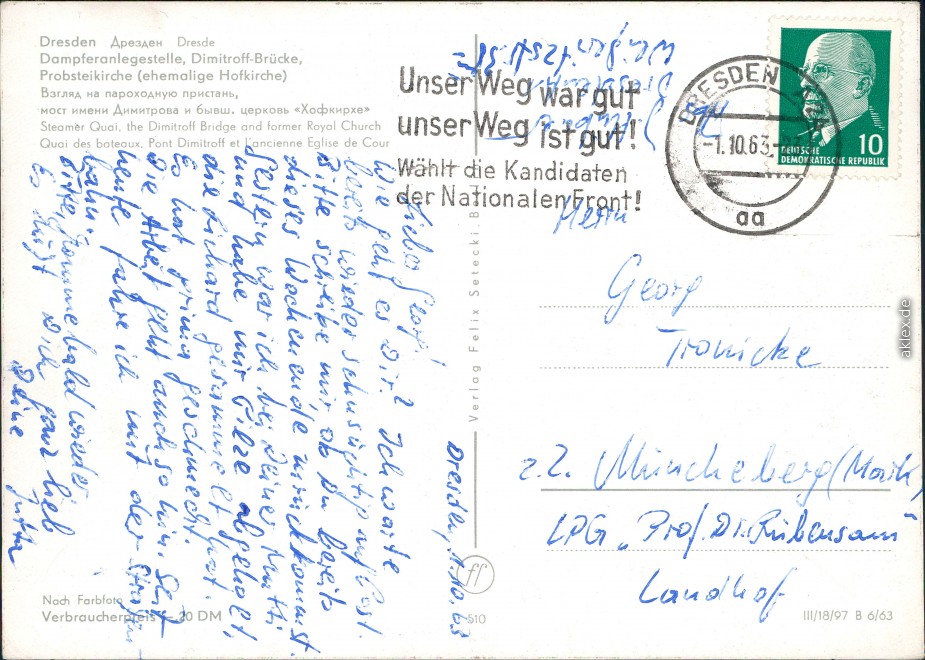 Dresden Дрезден Dresde
Dampferanlegestelle, Dimitroff-Brücke,
Probsteikirche (ehemalige Hofkirche)
Взгляд на пароходную пристань,
мост имени Димитрова и бывш. церковь «Хофкирхе»
Steamer Quai, the Dimitroff Bridge and former Royal Church
Quai des bateaux, Pont Dimitroff et l'ancienne Eglise de Cour
Unser Weg war gut
unser Weg ist gut!
Wählt die Kandidaten
der Nationalen Front!
DRESDEN
-1.10.63
aa
DEUTSCHE
DEMOKRATISCHE REPUBLIK
10
Dresden, 1.10.63
Lieber Georg!
Wie geht es Dir? Ich warte
bereits wieder sehnsüchtig auf Post.
Bitte schreibe mir ob Du bereits
dieses Wochenende zurückkommst.
Gestern war ich bei Deiner Mutti
und habe mir Pilze abgeholt,
die Lichard gesammelt hat.
Es hat prima geschmeckt.
Die Arbeit geht auch so hin. Seit
heute fahre ich mit der
bahn.
Bitte, komme bald wieder
Es küßt Dich ganz lieb
Deine Jutta
Herrn
Georg
Tronicke
z.Z. Müncheberg/Mark
LPG "Prof. Dr. Rübensam"
Landhof
Verlag Felix Setecki, B
Nach Farbfoto
Verbraucherpreis -.20 DM
510
III/18/97 B 6/63
aklex.de